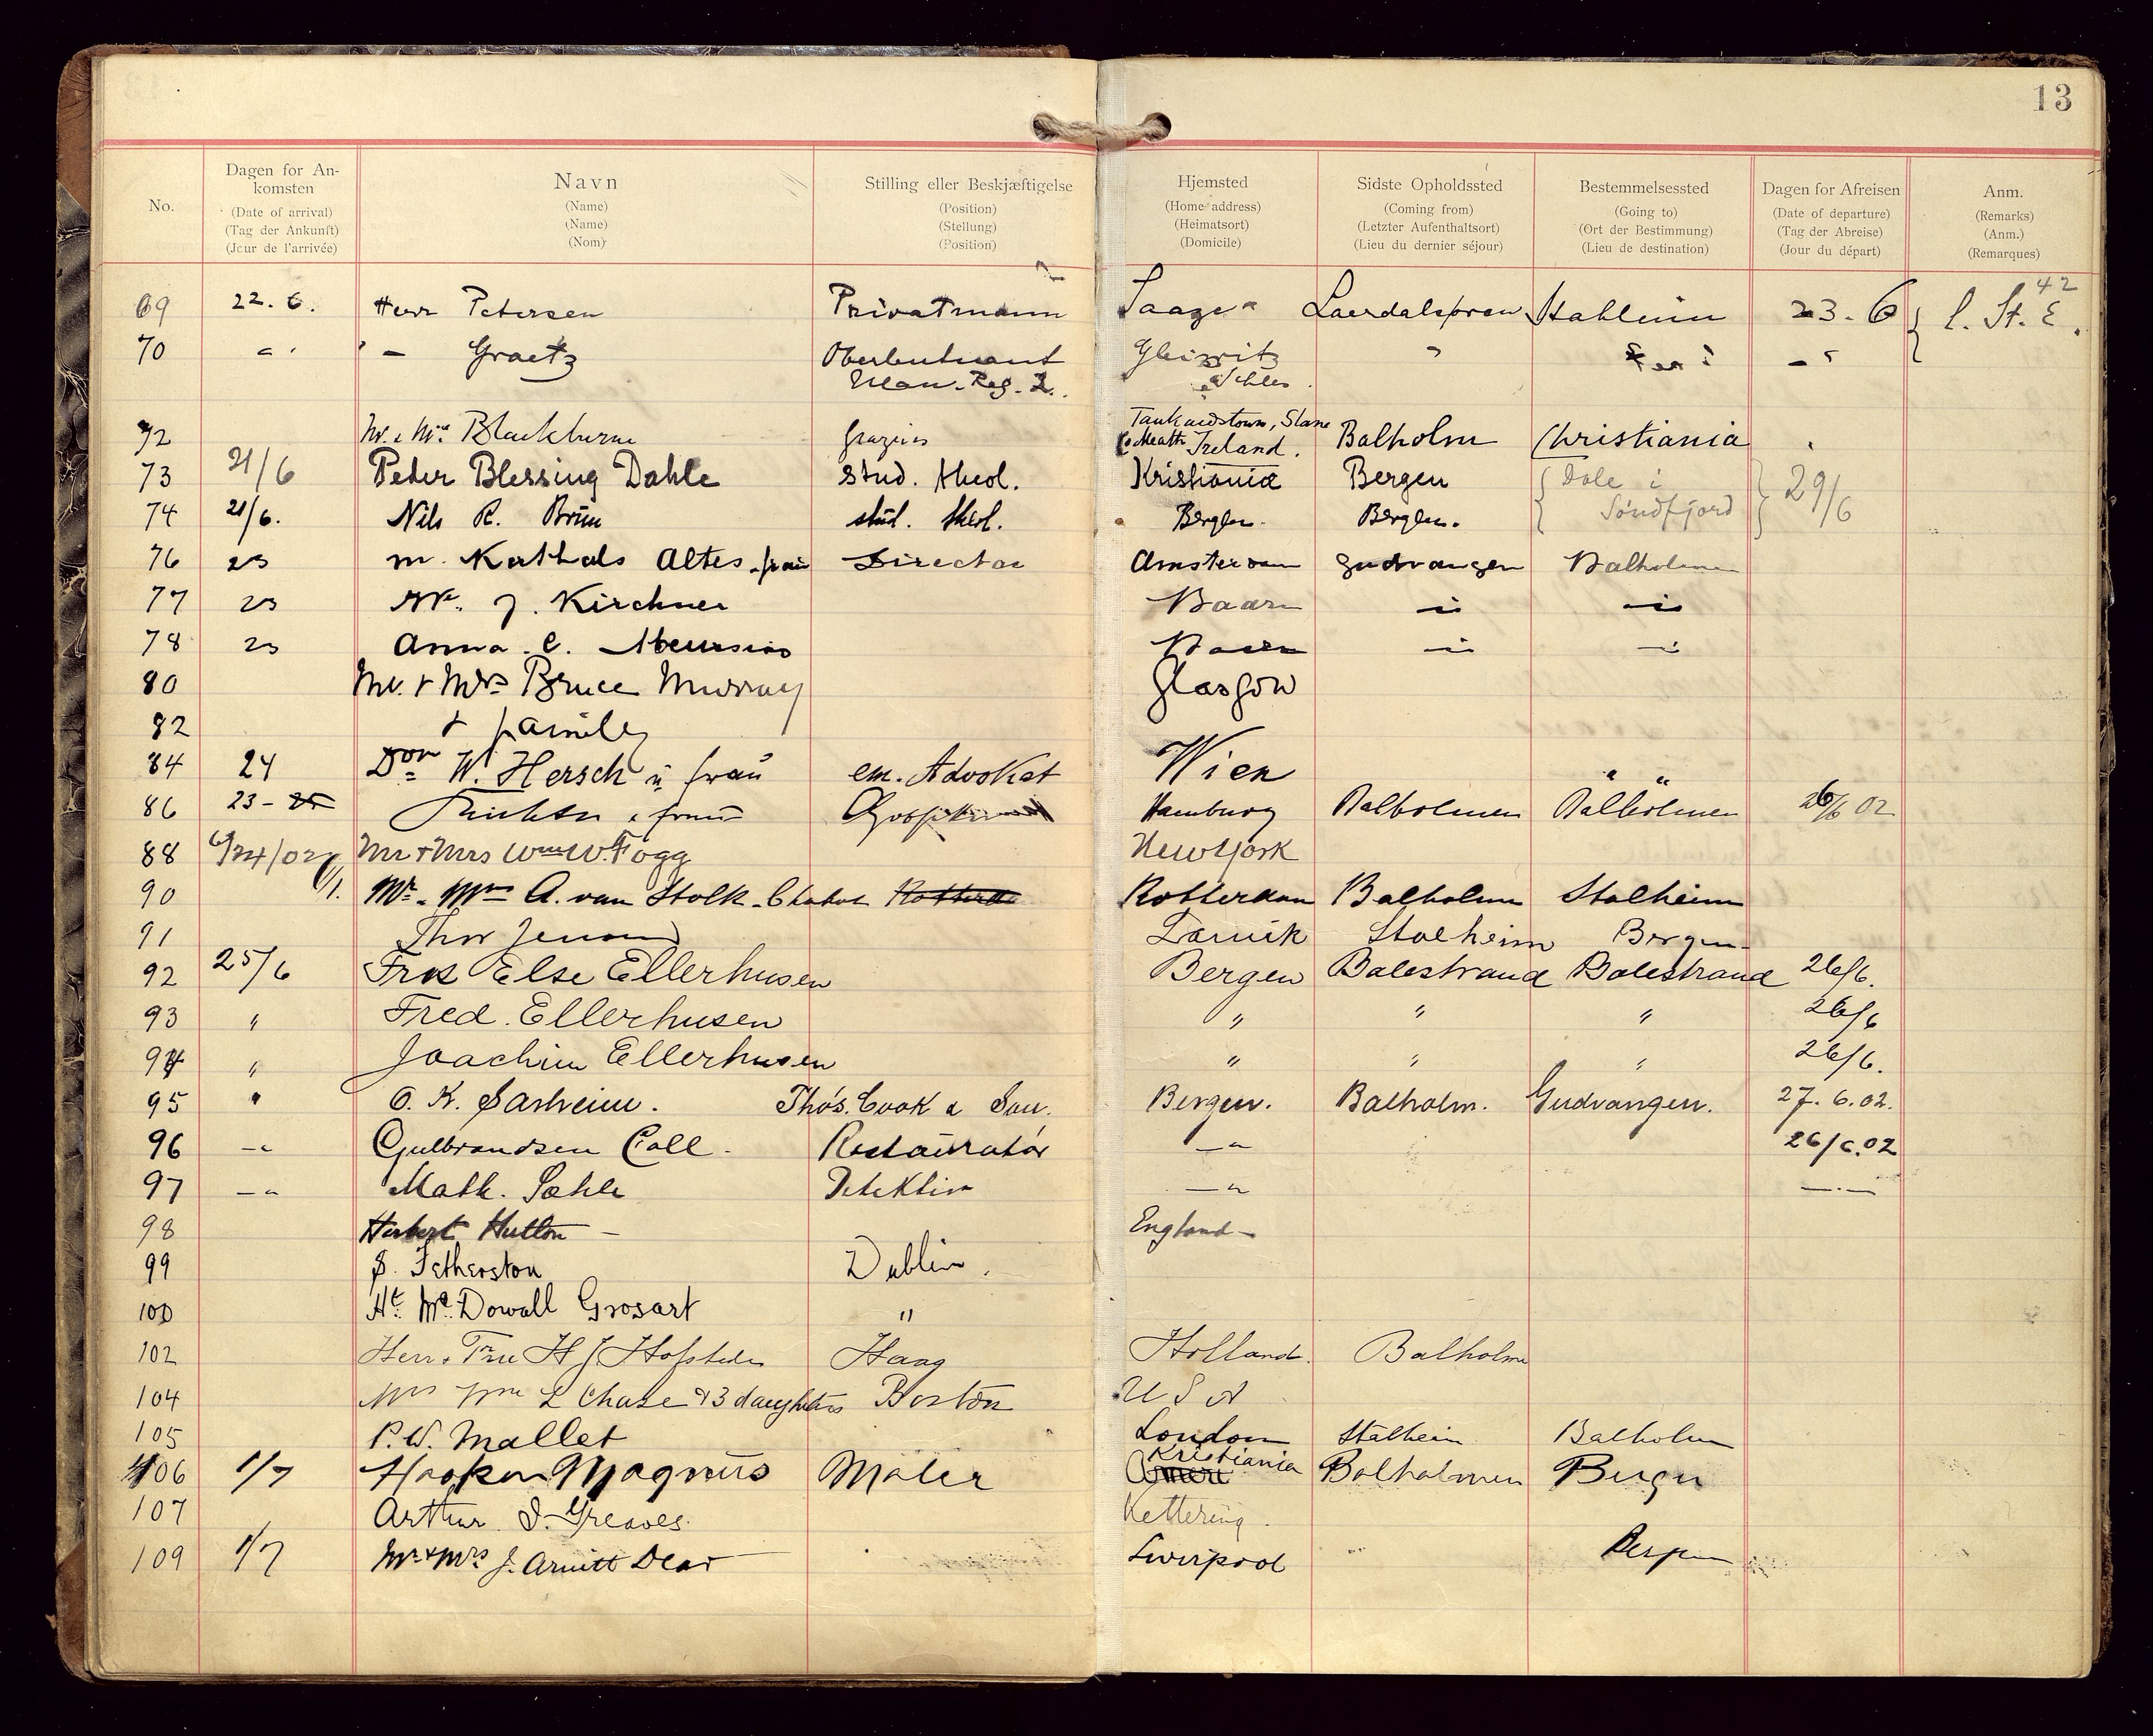 13
No.
Dagen for An-
komsten
(Date of arrival)
(Tag der Ankunft)
(Jour de l'arrivée)
Navn
(Name)
(Name)
(Nom)
Stilling eller Beskjæftigelse
(Position)
(Stellung)
(Position)
Hjemsted
(Home address)
(Heimatsort)
(Domicile)
Sidste Opholdssted
(Coming from)
(Letzter Aufenthaltsort)
(Lieu du dernier séjour)
Bestemmelsessted
(Going to)
(Ort der Bestimmung)
(Lieu de destination)
Dagen for Afreisen
(Date of departure)
(Tag der Abreise)
(Jour du départ)
Anm.
(Remarks)
(Anm.)
(Remarques)
69 22. 6. Herr Petersen Privatmann Stahleim 23. 6 42
70 Graetz Gleiwitz
Schles
72 Blackburne Tankardstown, Slane
Co Meath Ireland. Balholm Christiania
73 21/6 Peter Blessing Dahle Stud. theol. Kristiania Bergen Dale i 29/6
74 21/6. Nils R. Brun stud. theol. Bergen. Bergen. Søndfjord
76 23 m. Kolthals Altes Director Amsterdam Gudvangen Balholmen
77 23 J. Kirchner Baarn
78 23 Anna C. Meursing Baarn
80 Mr. & Mrs Bruce Murray Glasgow
82 & family
84 24 W. Hersch u frau em. Advokat Wien " "
86 23 - 25 Hamburg Balholmen Balholmen 26/6 02
88 6/24/02 Mr & Mrs Wm W. Fogg New York
90 Mr. Mrs A. van Stolk Rotterdam Balholm Stalheim
91 Thor Jensen Larvik Stalheim Bergen
92 25/6 Else Ellerhusen Bergen Balestrand Balestrand 26/6.
93 " Fred. Ellerhusen " " " 26/6
94 " Joachim Ellerhusen " " " 26/6.
95 " O. K. Sarheim. Thos. Cook & Son. Bergen. Balholm. Gudvangen. 27. 6. 02.
96 Gulbrandsen Coll. Restauratør 26/6.02
97 Math. Sæhle Detektiv
98 Herbert Hutton England
99 Fetherston Dublin.
100 McDowall Grosart "
102 Herr & Fru H J Hofstede Haag Holland. Balholm
104 Mrs Wm L Chase & 3 daughters Boston U S A
105 P. W. Mallet London Stalheim Balholm
106 1/7 Haakon Magnus Maler Kristiania Balholmen Bergen
107 Arthur Greaves. Kettering.
109 1/7 Mr & Mrs J. Arnitt Dear Liverpool Bergen